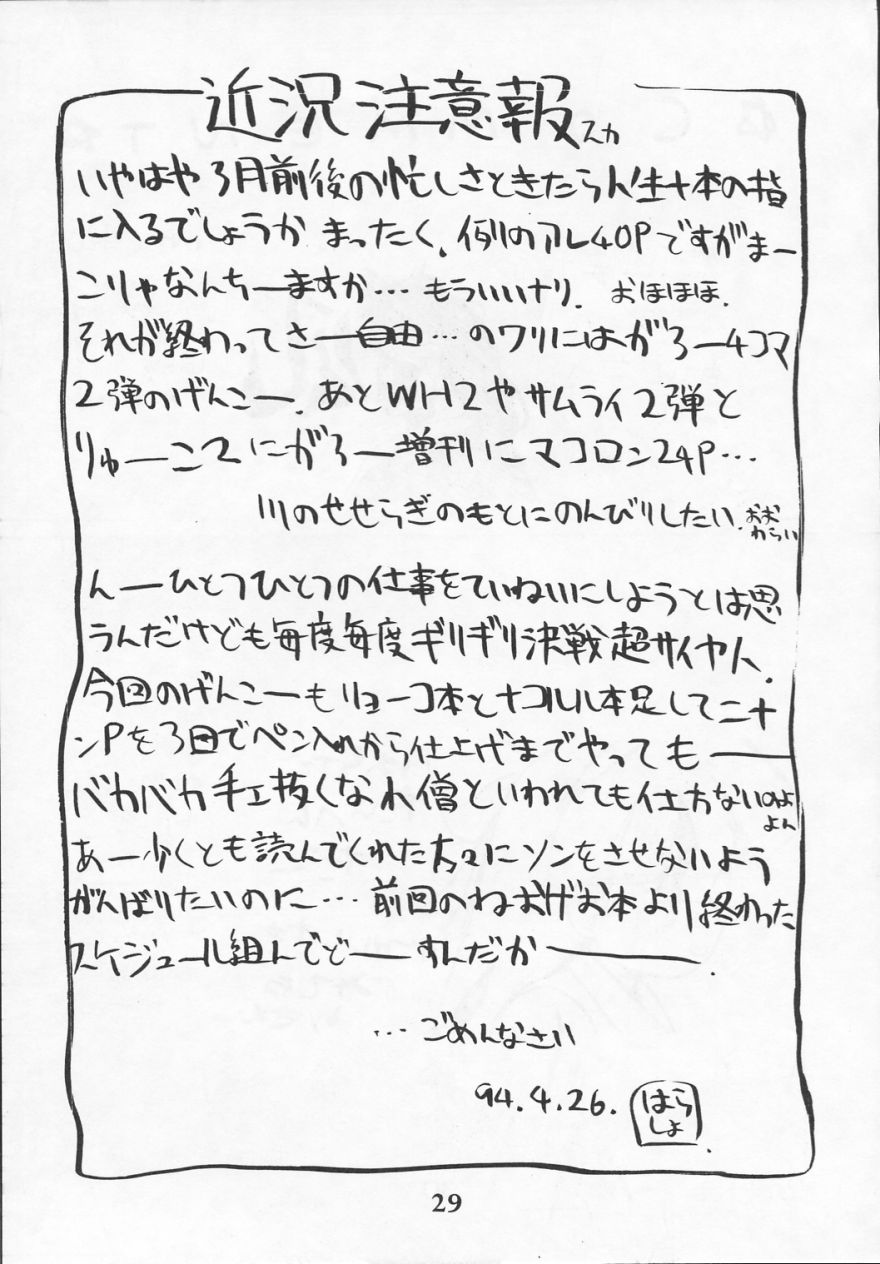 近況注意報 スカ
いやはや3月前後の忙しさときたら人生十本の指
に入るでしょうか まったく、例のアレ40Pですがまー
こりゃなんちーますか… もういいナリ. おほほほ.
それが終わってさー自由…のワリにはがろー4コマ
2弾のげんこー. あとWH2やサムライ2弾と
りゅーこ2にがろー増刊にマコロン24P…
川のせせらぎのもとにのんびりしたい. おおわらい
んーひとつひとつの仕事をていねいにしようとは思
うんだけども毎度毎度ギリギリ決戦超サイヤ人.
今回のげんこーもリョーコ本とナコルル本足してニナ
ンPを3日でペン入れから仕上げまでやってもー
バカバカ手ェ抜くなれ僧といわれても仕方ないのよよん
あー少くとも読んでくれた方々にソンをさせないよう
がんばりたいのに… 前回のねおげお本より終わった
スケジュール組んでどーすんだかー.
…ごめんなさい
94.4.26. はらしょ
29